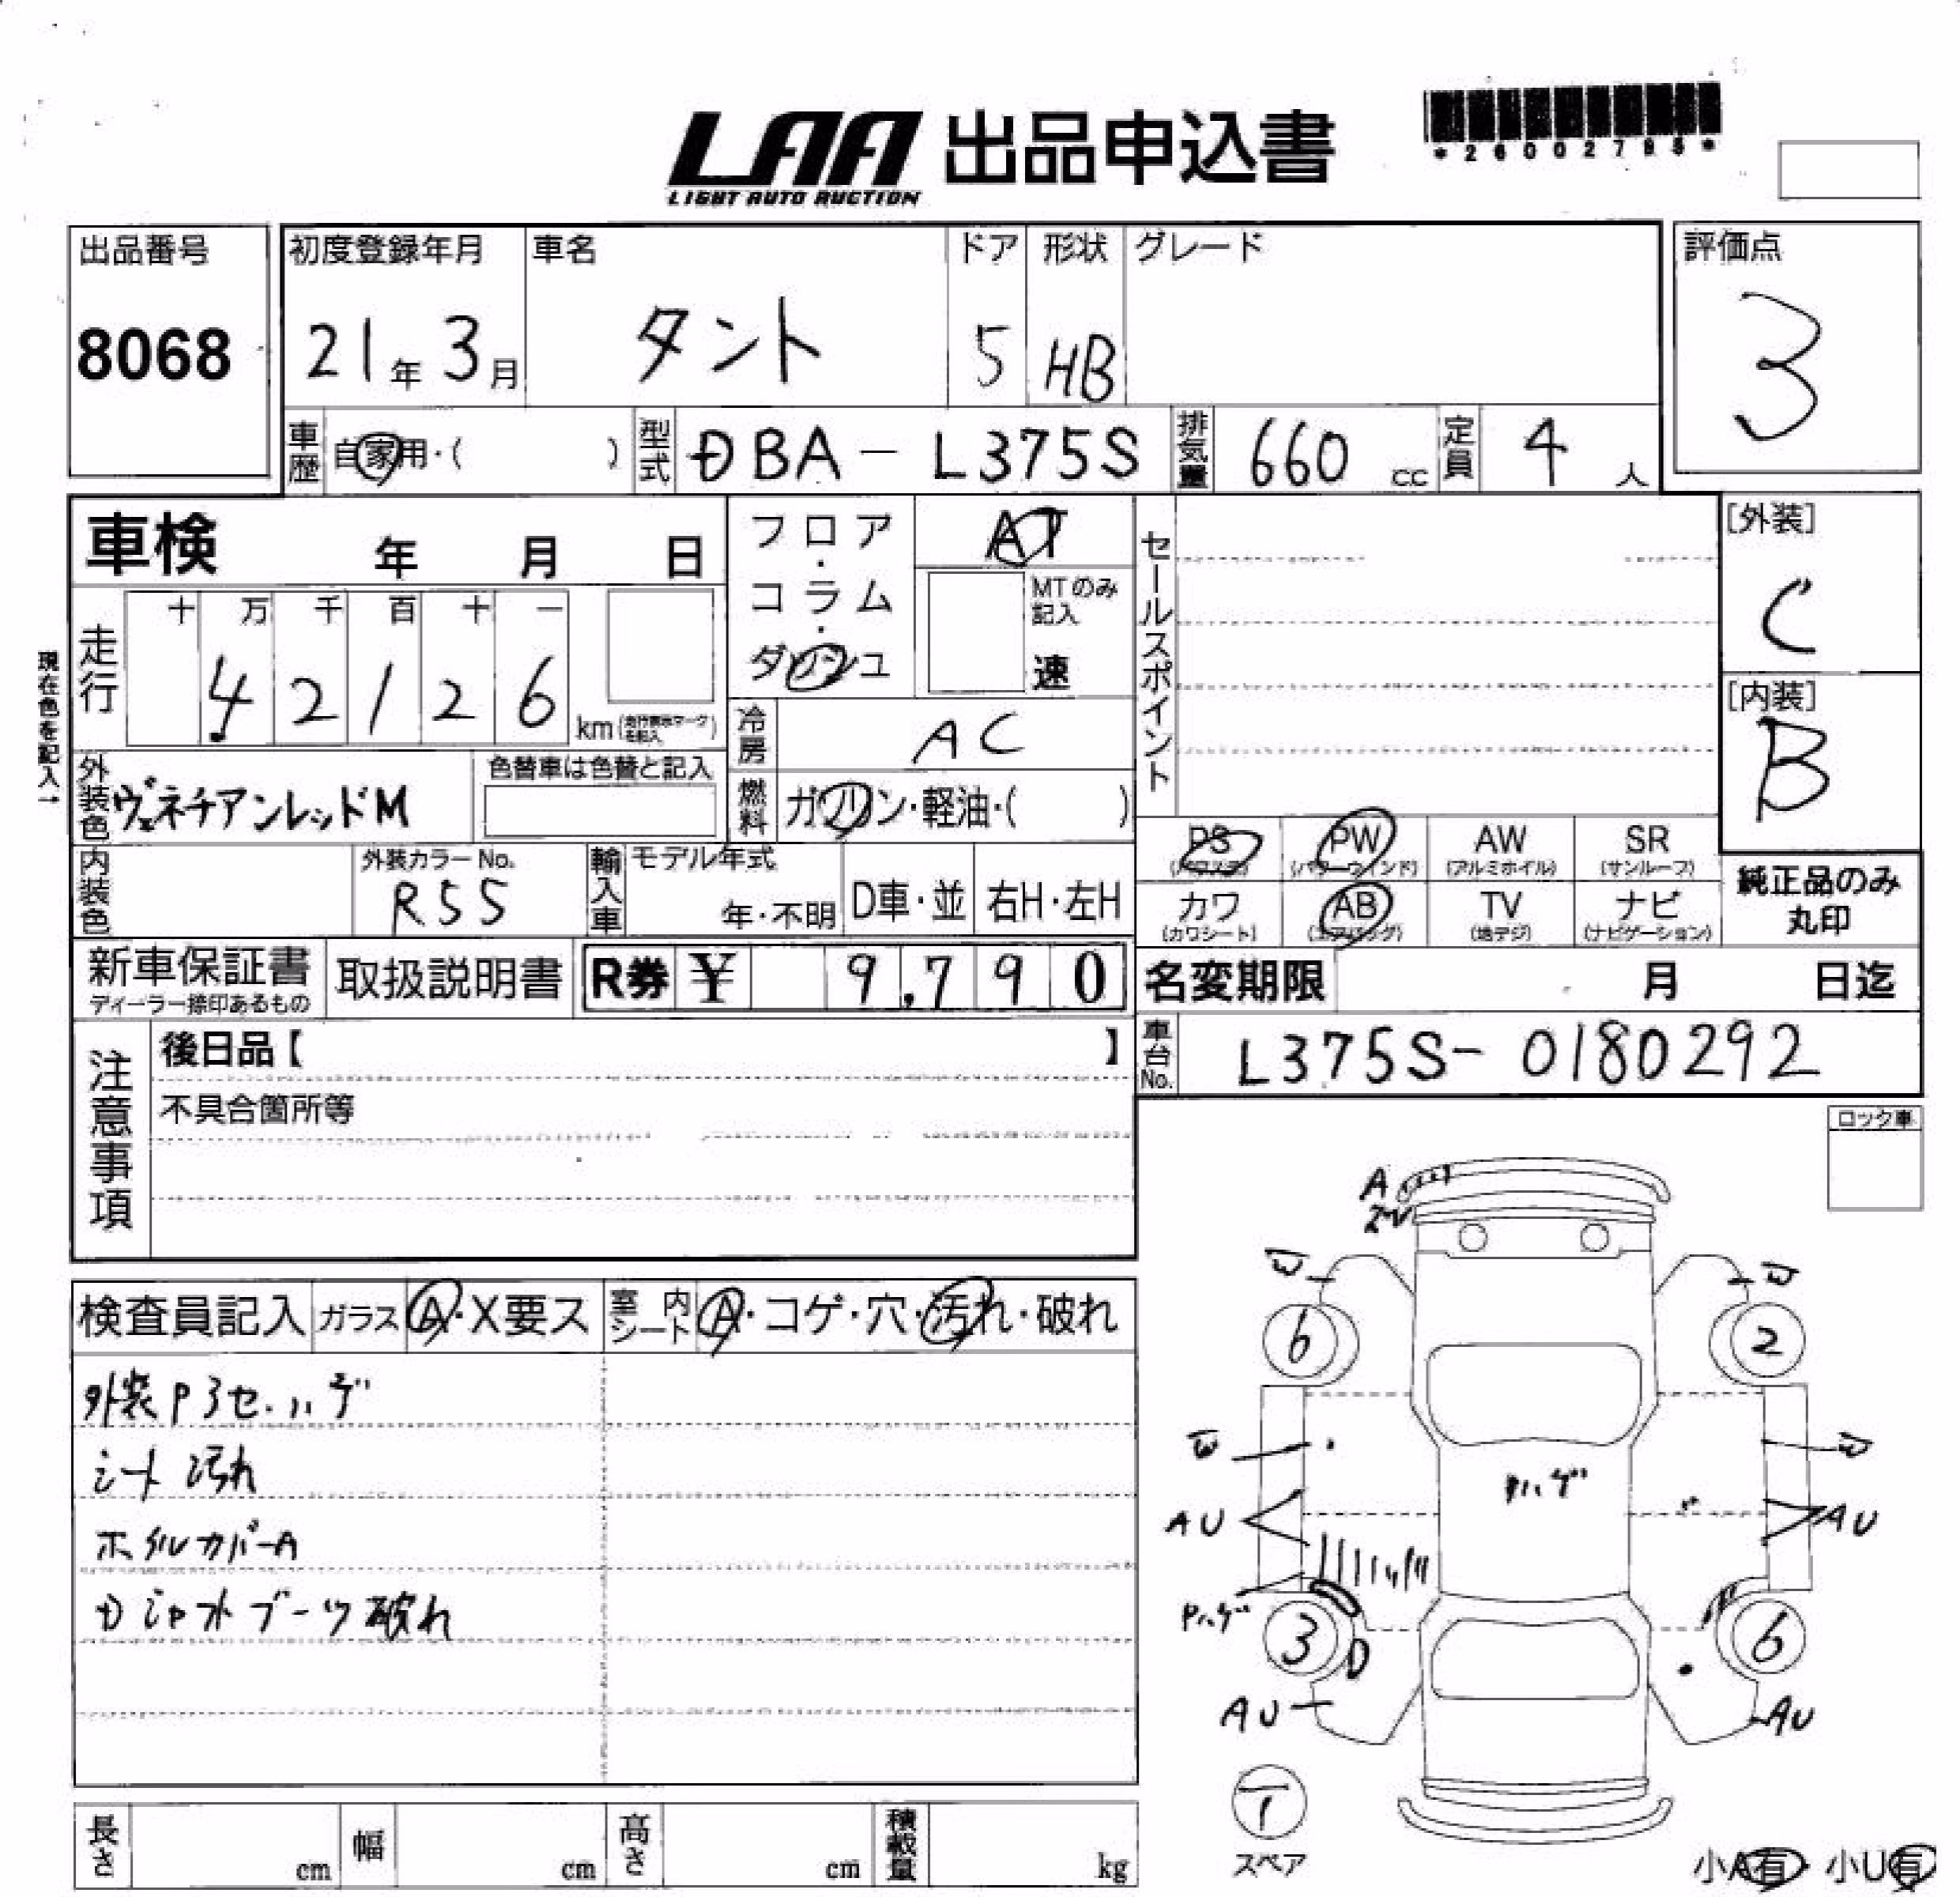 LAA 出品申込書
LIGHT AUTO AUCTION
出品番号 初度登録年月 車名 ドア 形状 グレード 評価点
8068 21年 3月 タント 5 HB 3
車歴 自家用・( ) 型式 DBA-L375S 排気量 660 cc 定員 4 人
車検 年 月 日
フロア・コラム・ダッシュ
AT
MTのみ記入
速
セールスポイント
[外装]
C
[内装]
B
現在色を記入→
走行 十 万 千 百 十 一
4 2 1 2 6 km
冷房 AC
外装色 ヴェネチアンレッドM 色替車は色替と記入
燃料 ガソリン・軽油・( )
PS PW AW SR
(パワステ) (パワーウインド) (アルミホイル) (サンルーフ)
カワ AB TV ナビ
(カワシート) (エアバッグ) (地デジ) (ナビゲーション)
純正品のみ
丸印
内装色 外装カラーNo. R55 輸入車 モデル年式 年・不明 D車・並 右H・左H
新車保証書 取扱説明書 R券 ¥ 9,790
ディーラー捺印あるもの
名変期限 月 日迄
車台No. L375S-0180292
注意事項
後日品【 】
不具合箇所等
ロック車
検査員記入 ガラス A・X要ス 室内シート A・コゲ・穴・汚れ・破れ
外装Pヨセ.ハゲ
シート汚れ
ホイルカバーA
Dシャフトブーツ破れ
A
W W
6 2
W W
Pハゲ
AU AU
Pハゲ
3 D 6
AU AU
スペア
小A有・小U有
長さ cm 幅 cm 高さ cm 積載量 kg